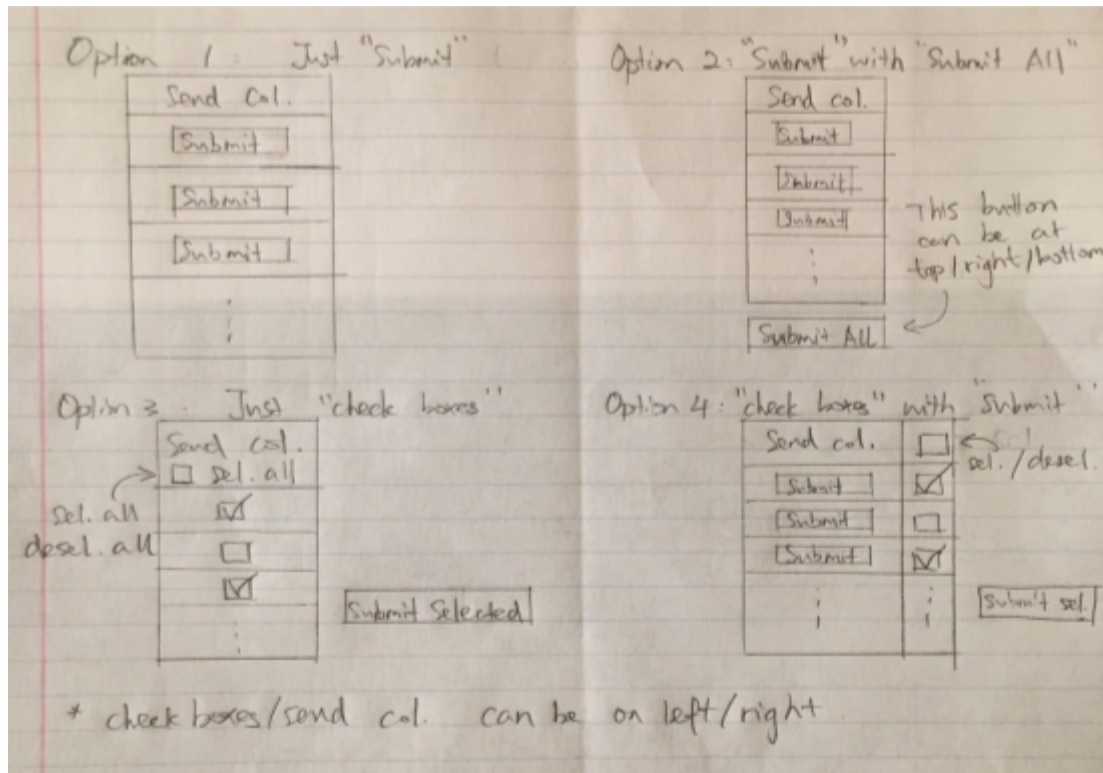 Option 1: Just "Submit"
Send Col.
Submit
Submit
Submit
Option 2: "Submit" with "Submit All"
Send col.
Submit
Submit
Submit
This button
can be at
top/right/bottom
Submit All
Option 3: Just "check boxes"
Send col.
sel. all
sel. all
desel. all
Submit Selected
Option 4: "check boxes" with "Submit"
Send col.
sel./desel.
Submit
Submit
Submit
Submit sel.
* check boxes/send col. can be on left/right